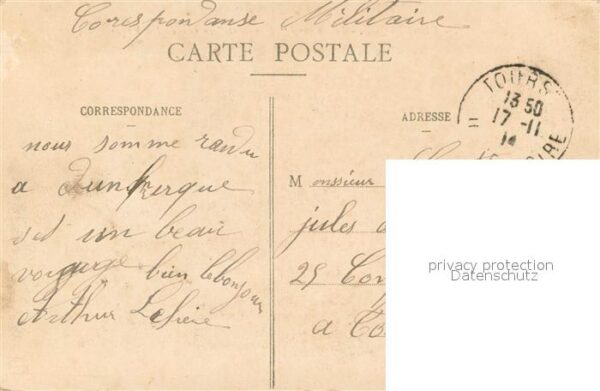 Corespondanse Militaire
CARTE POSTALE
CORRESPONDANCE
nous somme randu
a Dunkerque
set un beau
voyage bien le bonjour
Arthur
ADRESSE
TOURS
13 50
17 -11
14
Monssieur
jules
25
a
privacy protection
Datenschutz